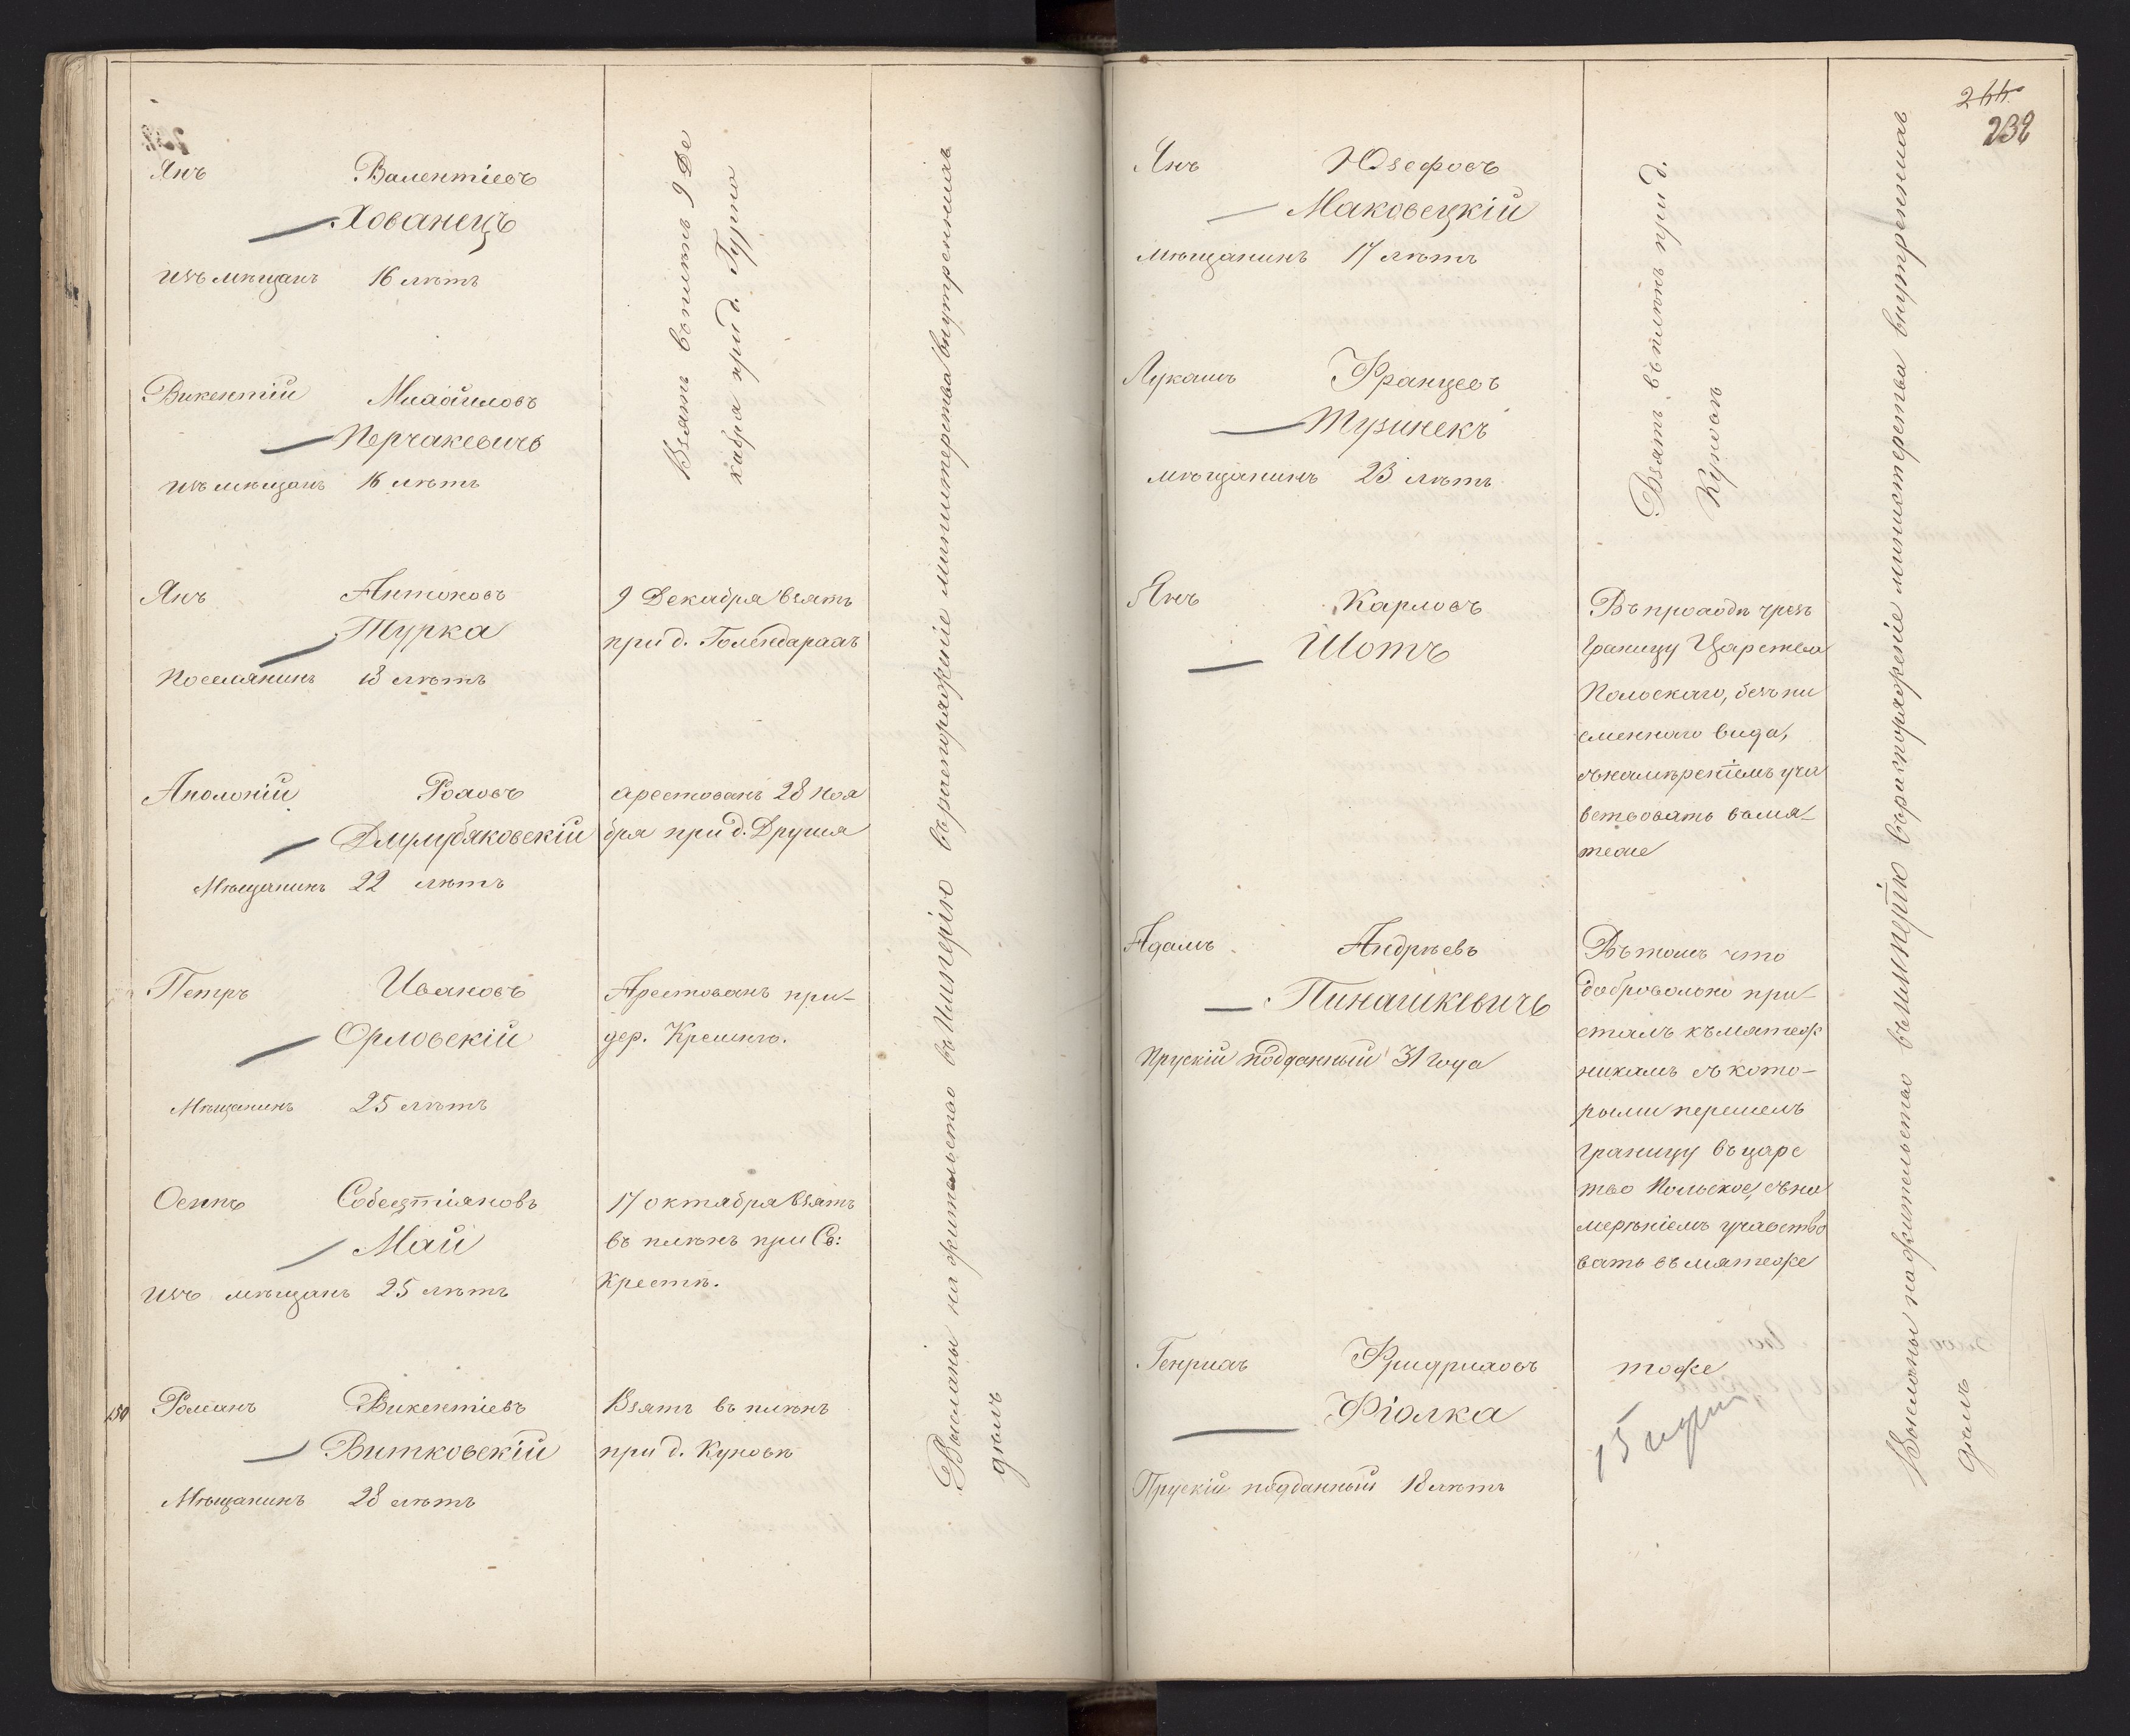 Янъ Валентіевъ
Хованецъ
изъ мѣщанъ 16 лѣтъ
Викентій Михайловъ
Перчакевичъ
изъ мѣщанъ 16 лѣтъ
Взятъ въ плѣнъ 9 Де
кабря при д.
Янъ Антоновъ
Турка
Поселянинъ 18 лѣтъ
9 Декабря взятъ
при д.
Аполоній Роховъ
мѣщанинъ 22 лѣтъ
арестованъ 28 Ноя
бря при д.
Петръ Ивановъ
Орловскій
Мѣщанинъ 25 лѣтъ
Арестованъ при-
дер.
Осипъ Собестіяновъ
Май
изъ мѣщанъ 25 лѣтъ
17 октября взятъ
въ плѣнъ при Св:
Крестѣ.
150 Романъ Викентіевъ
Витковскій
Мѣщанинъ 28 лѣтъ
Взятъ въ плѣнъ
при д. Куновѣ
Высланы на жительство въ Имперію въ распоряженіе министерства внутреннихъ
дѣлъ
244
232
Янъ Юзефовъ
Маковецкій
мѣщанинъ 17 лѣтъ
Лукашъ Францевъ
Тузинекъ
мѣщанинъ 23 лѣтъ
Взятъ въ плѣнъ при д.
Куновѣ
Янъ Карловъ
Шотъ
Въ проходѣ чрезъ
границу Царства
Польскаго, безъ пи
сменнаго вида,
съ намѣреніемъ уча
ствовать въ мя-
тежѣ
Адамъ Андрѣевъ
Пинашкевичъ
Прускій подданный 31 года
Въ томъ что
добровольно при-
сталъ къ мятеж
никамъ съ кото-
рыми перешелъ
границу въ царс
тво Польское, съ на
мерѣніемъ участво
вать въ мятежѣ
Генрихъ Фридриховъ
Фіолка
Прускій подданный 18 лѣтъ
тоже
15
Высланы на жительство въ имперію въ распоряженіе министерства внутреннихъ
дѣлъ